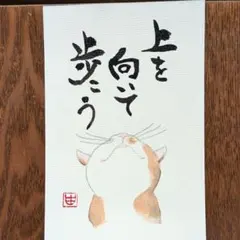 上を
向いて
歩こう